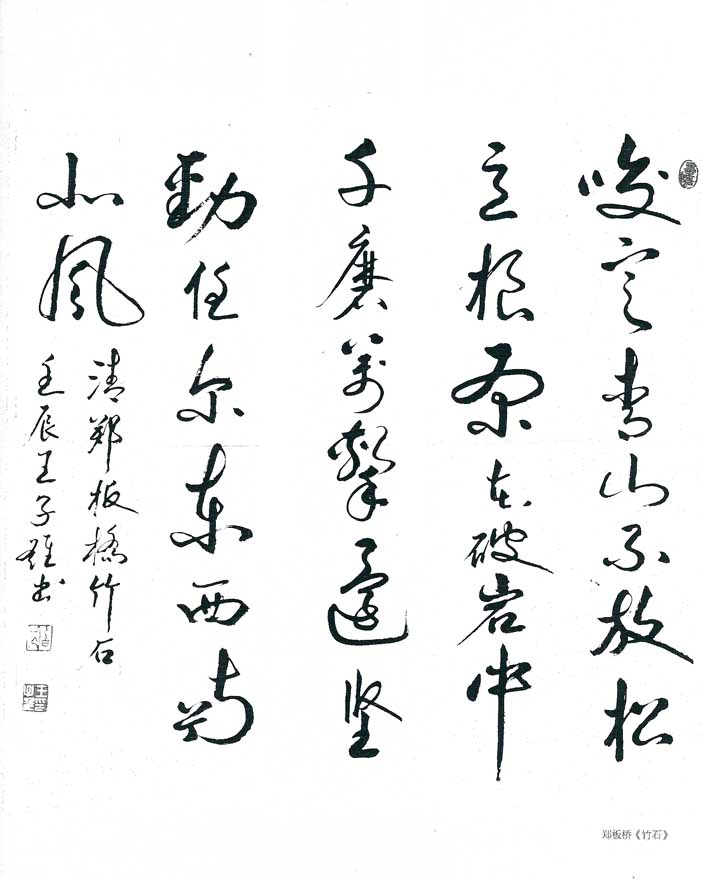 咬定青山不放松
立根原在破岩中
千磨萬擊還坚
勁任尔东西南
北風
清鄭板橋竹石
壬辰王子雄书
郑板桥《竹石》